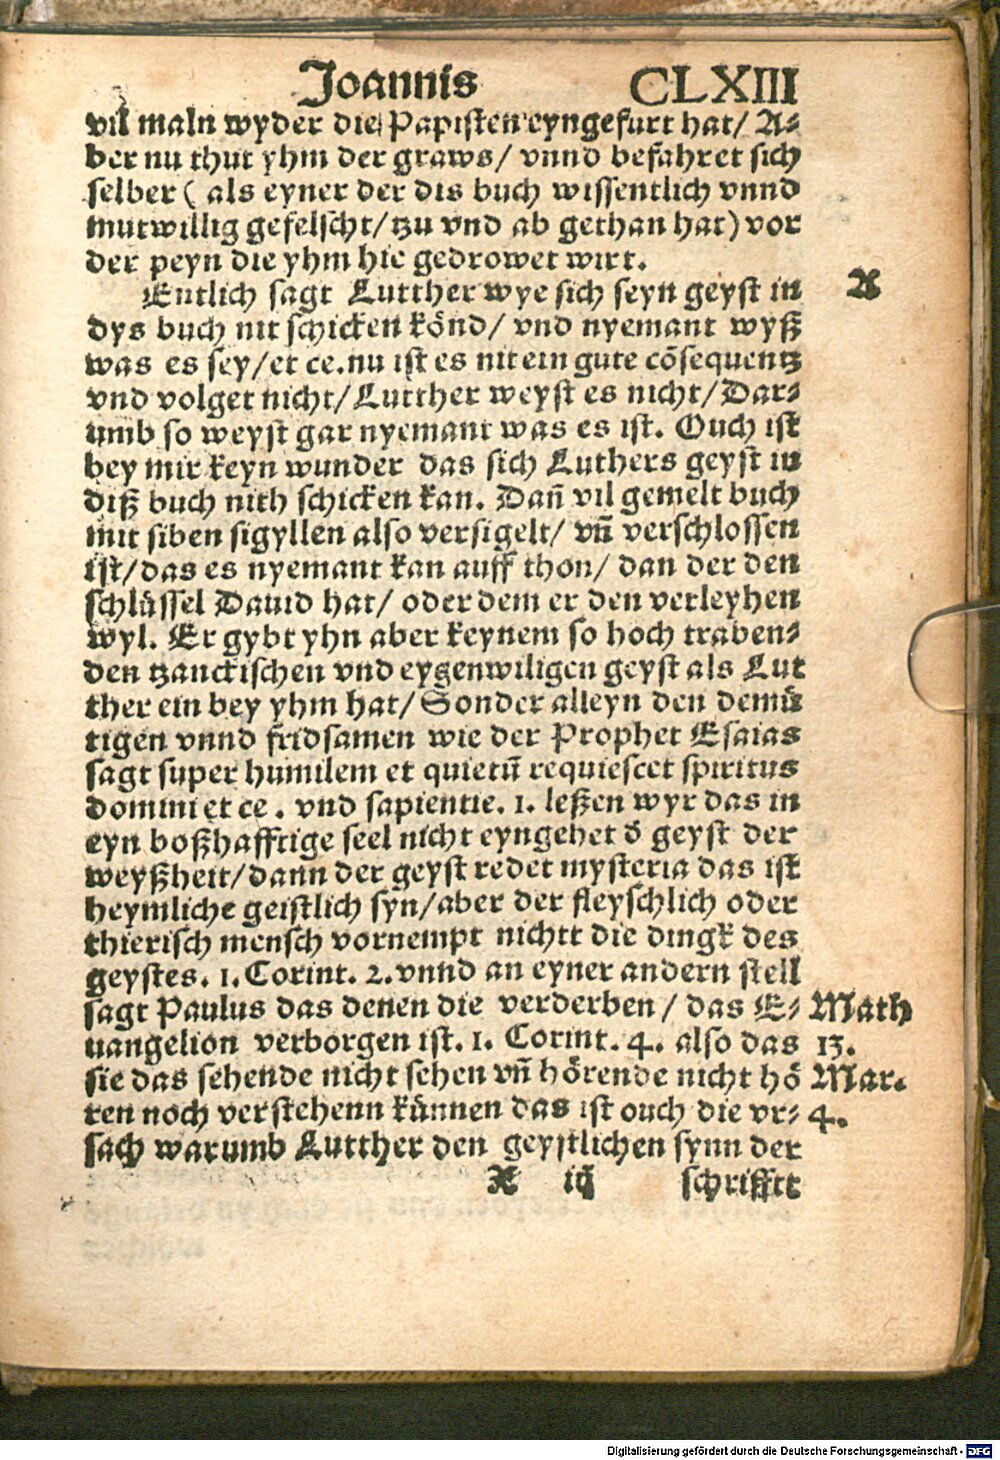 Joannis CLXIII
vil maln wyder die Papisten eyngefurt hat/ A⸗
ber nu thut yhm der graws/ vnnd befahret sich
selber ( als eyner der dis buch wissentlich vnnd
mutwillig gefelscht/ tzu vnd ab gethan hat) vor
der peyn die yhm hie gedrowet wirt.
Entlich sagt Lutther wye sich seyn geyst in
dys buch nit schicken könd/ vnd nyemant wyß
was es sey/ et ce. nu ist es nit ein gute cōsequentz
vnd volget nicht/ Lutther weyst es nicht/ Dar⸗
umb so weyst gar nyemant was es ist. Ouch ist
bey mir keyn wunder das sich Luthers geyst in
diß buch nith schicken kan. Dañ vil gemelt buch
mit siben sigyllen also versigelt/ vñ verschlossen
ist/ das es nyemant kan auff thon/ dan der den
schlüssel Dauid hat/ oder dem er den verleyhen
wyl. Er gybt yhn aber keynem so hoch traben⸗
den tzanckischen vnd eygenwiligen geyst als Lut
ther ein bey yhm hat/ Sonder alleyn den demü
tigen vnnd fridsamen wie der Prophet Esaias
sagt super humilem et quietū requiescet spiritus
domini et ce. vnd sapientie. 1. leßen wyr das in
eyn boßhafftige seel nicht eyngehet d̄ geyst der
weyßheit/ dann der geyst redet mysteria das ist
heymliche geistlich syn/ aber der fleyschlich oder
thierisch mensch vornempt nichtt die dingk des
geystes. 1. Corint. 2. vnnd an eyner andern stell
sagt Paulus das denen die verderben/ das E⸗
uangelion verborgen ist. 1. Corint. 4. also das
sie das sehende nicht sehen vñ hörende nicht hö
ren noch verstehenn künnen das ist ouch die vr⸗
sach warumb Lutther den geystlichen synn der
X iij schrifftt
X
Math
13.
Mar.
4.
Digitalisierung gefördert durch die Deutsche Forschungsgemeinschaft - DFG